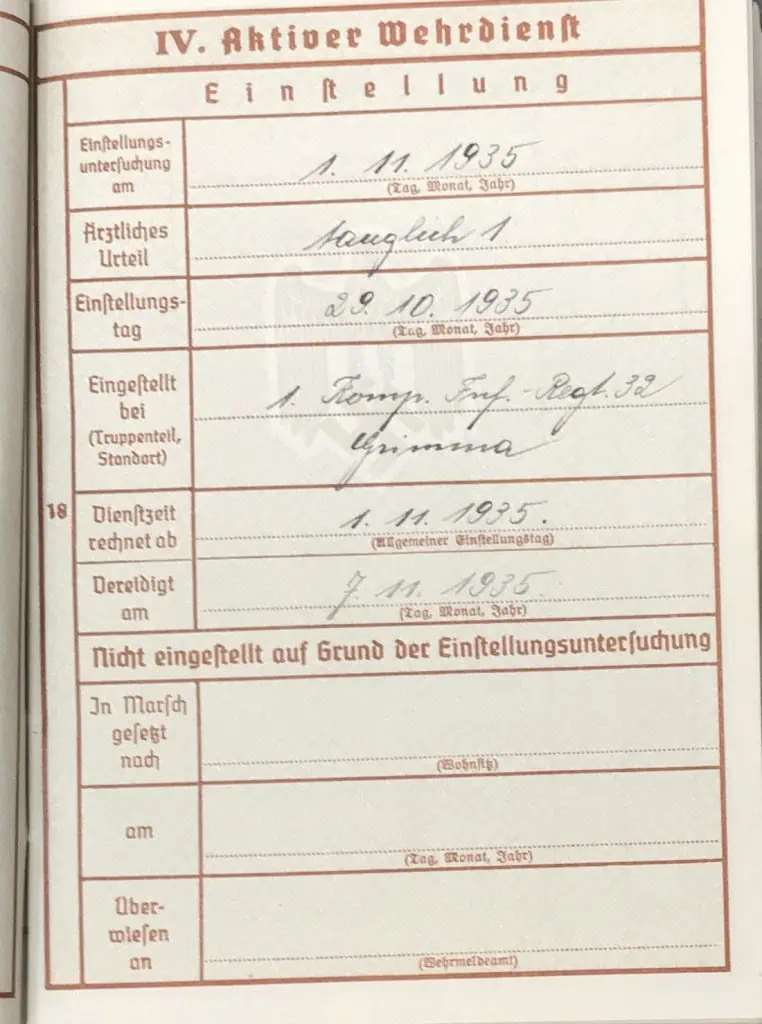 IV. Aktiver Wehrdienst
Einstellung
Einstellungs-
untersuchung
am
1. 11. 1935
(Tag, Monat, Jahr)
Ärztliches
Urteil
tauglich 1
Einstellungs-
tag
29. 10. 1935
(Tag, Monat, Jahr)
Eingestellt
bei
(Truppenteil,
Standort)
1. Komp. Inf.-Regt. 32
Grimma
18
Dienstzeit
rechnet ab
1. 11. 1935.
(Allgemeiner Einstellungstag)
Vereidigt
am
7. 11. 1935.
(Tag, Monat, Jahr)
Nicht eingestellt auf Grund der Einstellungsuntersuchung
In Marsch
gesetzt
nach
(Wohnsitz)
am
(Tag, Monat, Jahr)
Über-
wiesen
an
(Wehrmeldeamt)